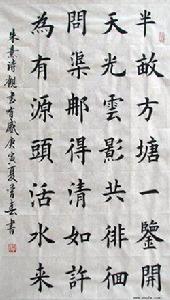 半畝方塘一鑒開
天光雲影共徘徊
問渠那得清如許
為有源頭活水来
朱熹詩觀書有感庚寅夏曾春書